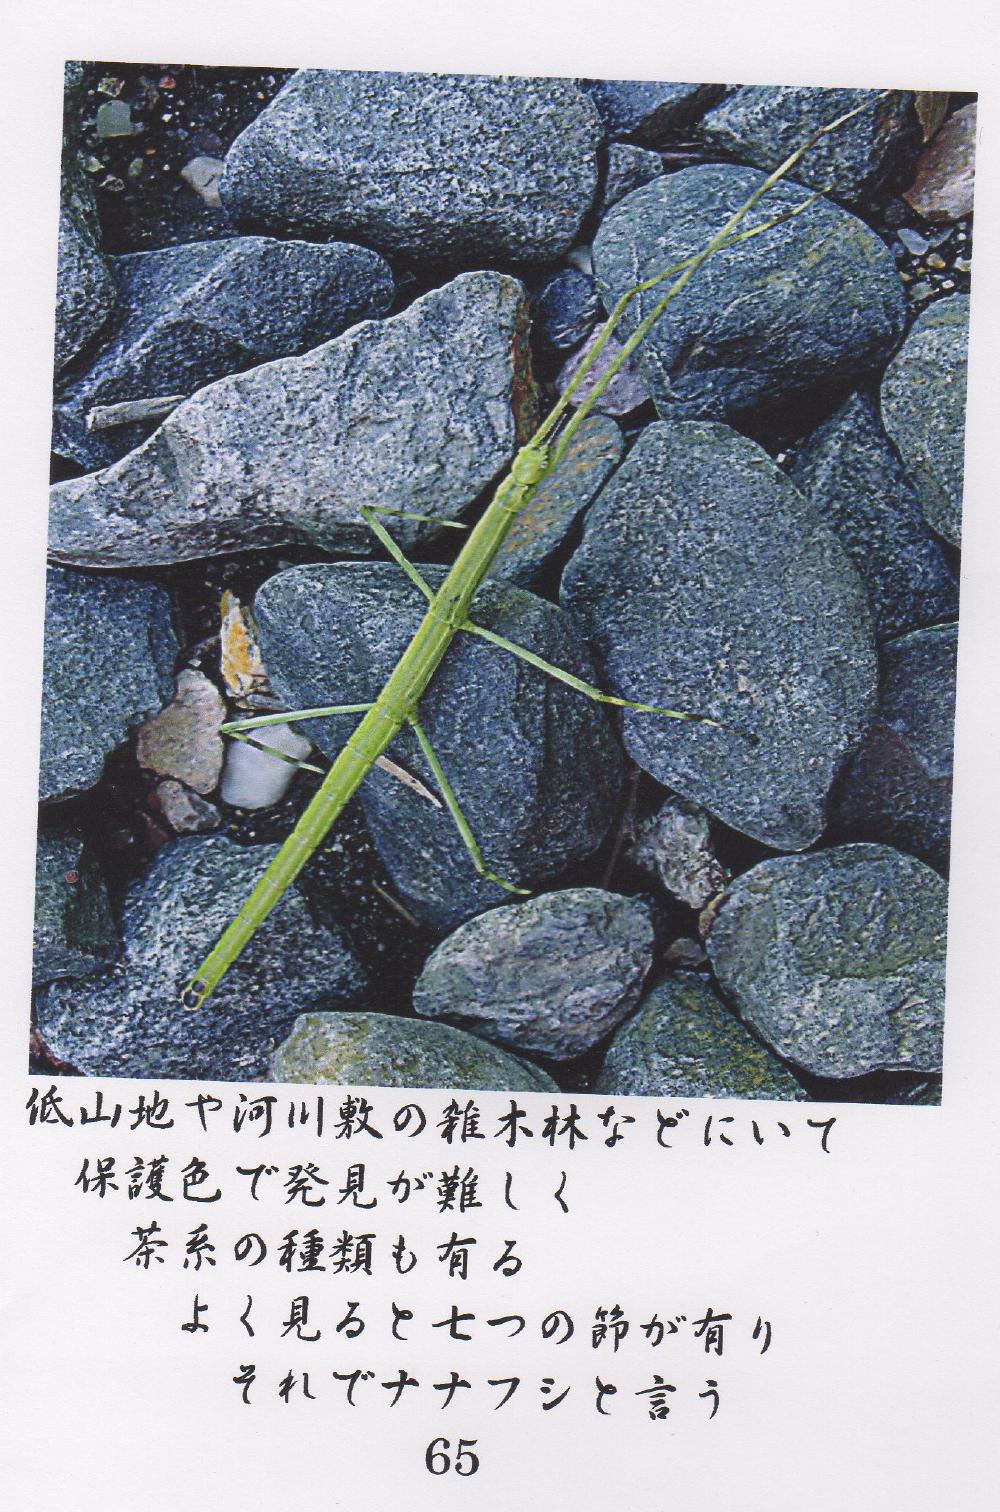 低山地や河川敷の雑木林などにいて
保護色で発見が難しく
茶系の種類も有る
よく見ると七つの節が有り
それでナナフシと言う
65